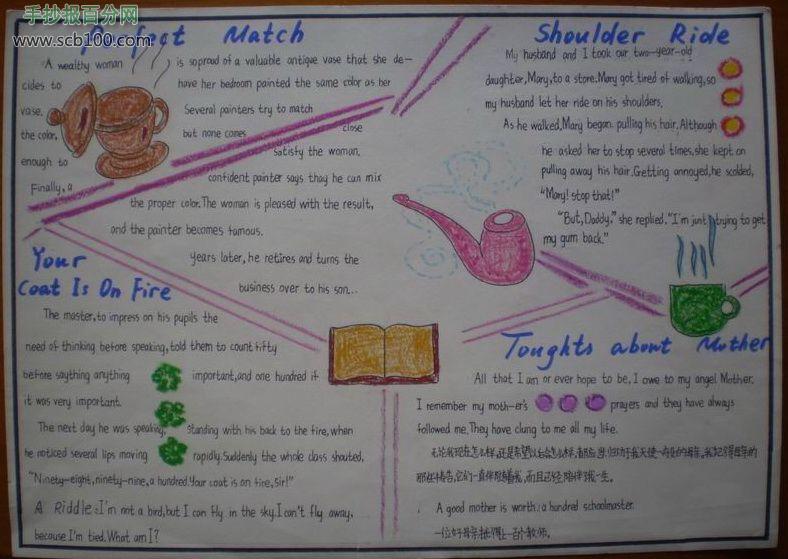 手抄报百分网
www.scb100.com
Perfect Match
A wealthy woman ) is soproud of a valuable antique vase that she de-
cides to have her bedroom painted the same color as her
vase. Several painters try to match
the color, but none comes close
enough to satisfy the woman.
Finally, a confident painter says thay he can mix
the proper color. The woman is pleased with the result,
and the painter becomes famous.
years later, he retires and turns the
business over to his son...
Shoulder Ride
My husband and I took our two-year-old
daughter, Mary, to a store. Mary got tired of walking, so
my husband let her ride on his shoulders.
As he walked, Mary began pulling his hair. Although
he asked her to stop several times, she kept on
pulling away his hair. Getting annoyed, he scolded,
"Mary! stop that!"
"But, Daddy," she replied. "I'm just trying to get
my gum back."
Your
Coat Is On Fire
The master, to impress on his pupils the
need of thinking before speaking, told them to count fifty
before saything anything important, and one hundred if
it was very important.
The next day he was speaking, standing with his back to the fire, when
he noticed several lips moving rapidly. Suddenly the whole class shouted,
"Ninety-eight, ninety-nine, a hundred. Your coat is on fire, Sir!"
A Riddle: I'm not a bird, but I can fly in the sky. I can't fly away,
because I'm tied. What am I?
Toughts about Mother
All that I am or ever hope to be, I owe to my angel Mother.
I remember my moth-er's prayers and they have always
followed me. They have clung to me all my life.
无论我现在怎么样,还是希望以后会怎么样,都应当归功于我天使一般的母亲。我记得母亲的
那些祷告,它们一直伴随着我,而且已经陪伴了我一生。
A good mother is worth a hundred schoolmaster.
一位好母亲抵得上一百个教师。